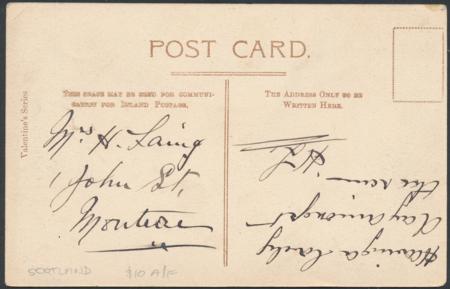 POST CARD.
THIS SPACE MAY BE USED FOR COMMUNI-
CATION FOR INLAND POSTAGE.
THE ADDRESS ONLY TO BE
WRITTEN HERE.
Valentine's Series
H. Laing
1 John St,
Montrose
Having a lovely
day amongst
the
HL
SCOTLAND
$10 A/F